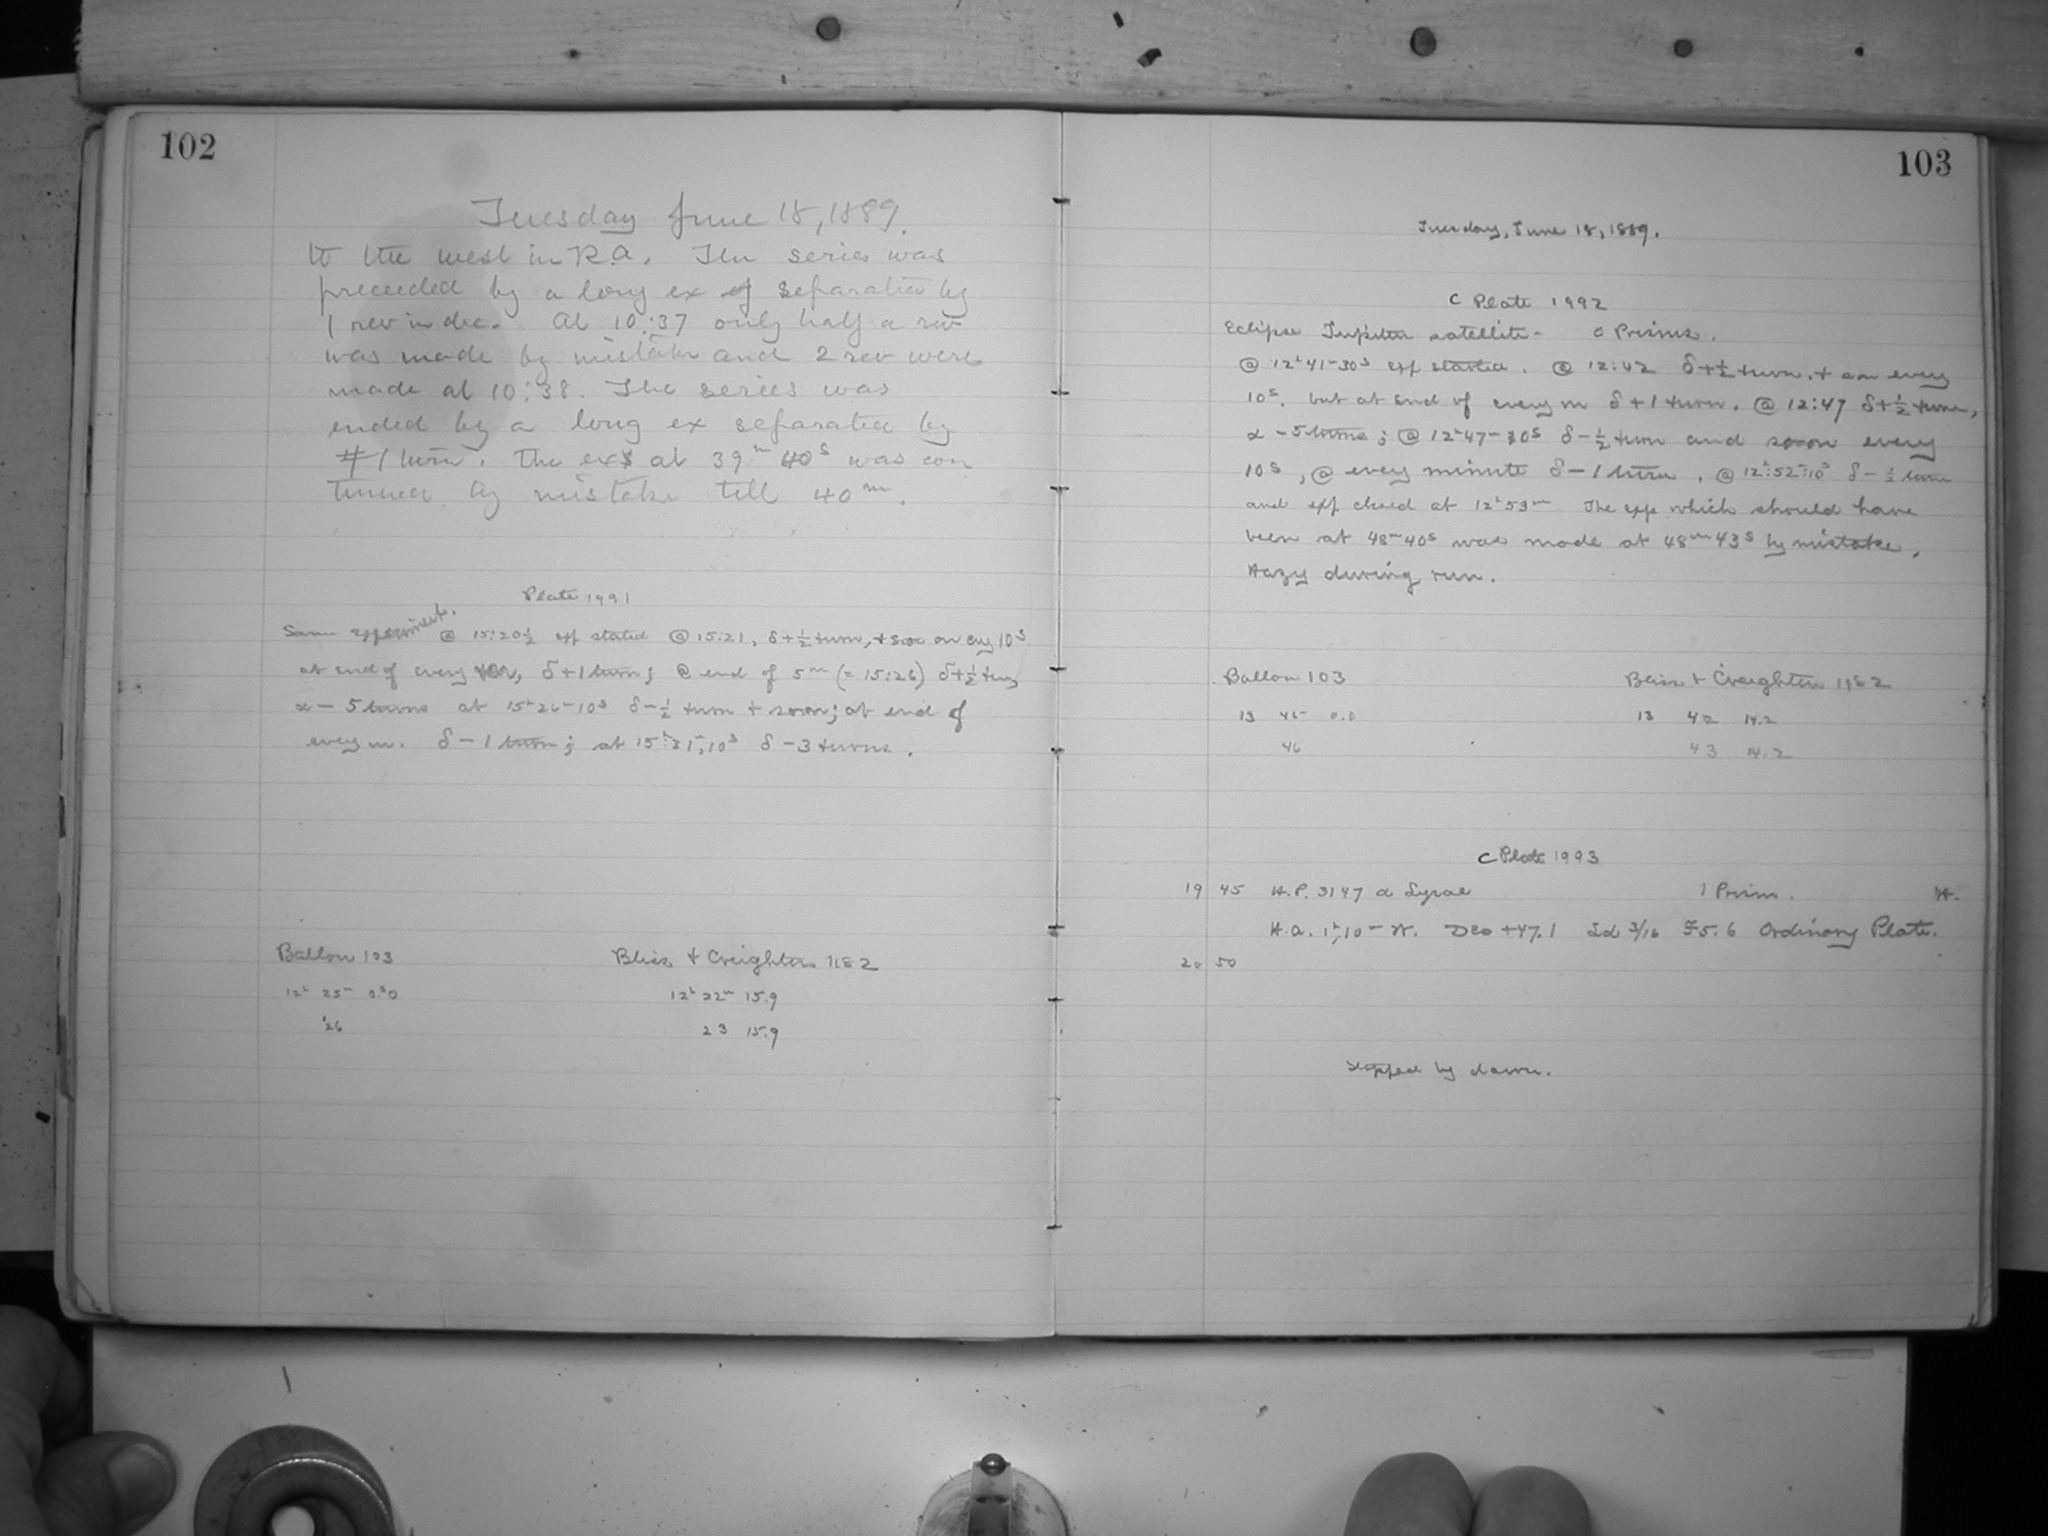 102
Tuesday June 18, 1889.
to the west in R.a. The series was
preceeded by a long ex separated by
1 rev in dec. At 10:37 only half a rev
was made by mistake and 2 rev were
made at 10:38. The series was
ended by a long ex separated by
1 turn. The ex at 39m 40s was con
tinued by mistake till 40m.
Plate 1991
Same experiment. @ 15:20½ exp stated @ 15:21, δ+½ turn, + soon every 10s
at end of every m, δ+1 turn; @ end of 5m (= 15:26) δ+½ turn
α – 5 turns at 15h26m10s δ–½ turn + soon; at end of
every m. δ – 1 turn; at 15h:31m,10s δ – 3 turns.
Ballou 103 Bliss & Creighton 1182
12h 25m 0.s0 12h 22m 15.9
26 23 15.9
103
Tuesday, June 18, 1889.
C Plate 1992
Eclipse Jupiter satellite – 0 Prisms.
@ 12h41m30s exp started. @ 12:42 δ+½ turn, + soon every
10s. but at end of every m δ+1 turn. @ 12:47 δ+½ turn,
α – 5 turns; @ 12h47m10s δ–½ turn and soon every
10s, @ every minute δ – 1 turn. @ 12h:52m:10s δ–½ turn
and exp closed at 12h53m The exp which should have
been at 48m40s was made at 48m43s by mistake.
Hazy during run.
Ballou 103 Bliss & Creighton 1182
13 45 0.0 13 42 14.2
46 43 14.2
C Plate 1993
19 45 H.P. 3147 α Lyrae 1 Prism. H.
H.a. 1h,10m W. Dec +47.1 Sd 3/16 F5.6 Ordinary Plate.
20 50
Stopped by dawn.